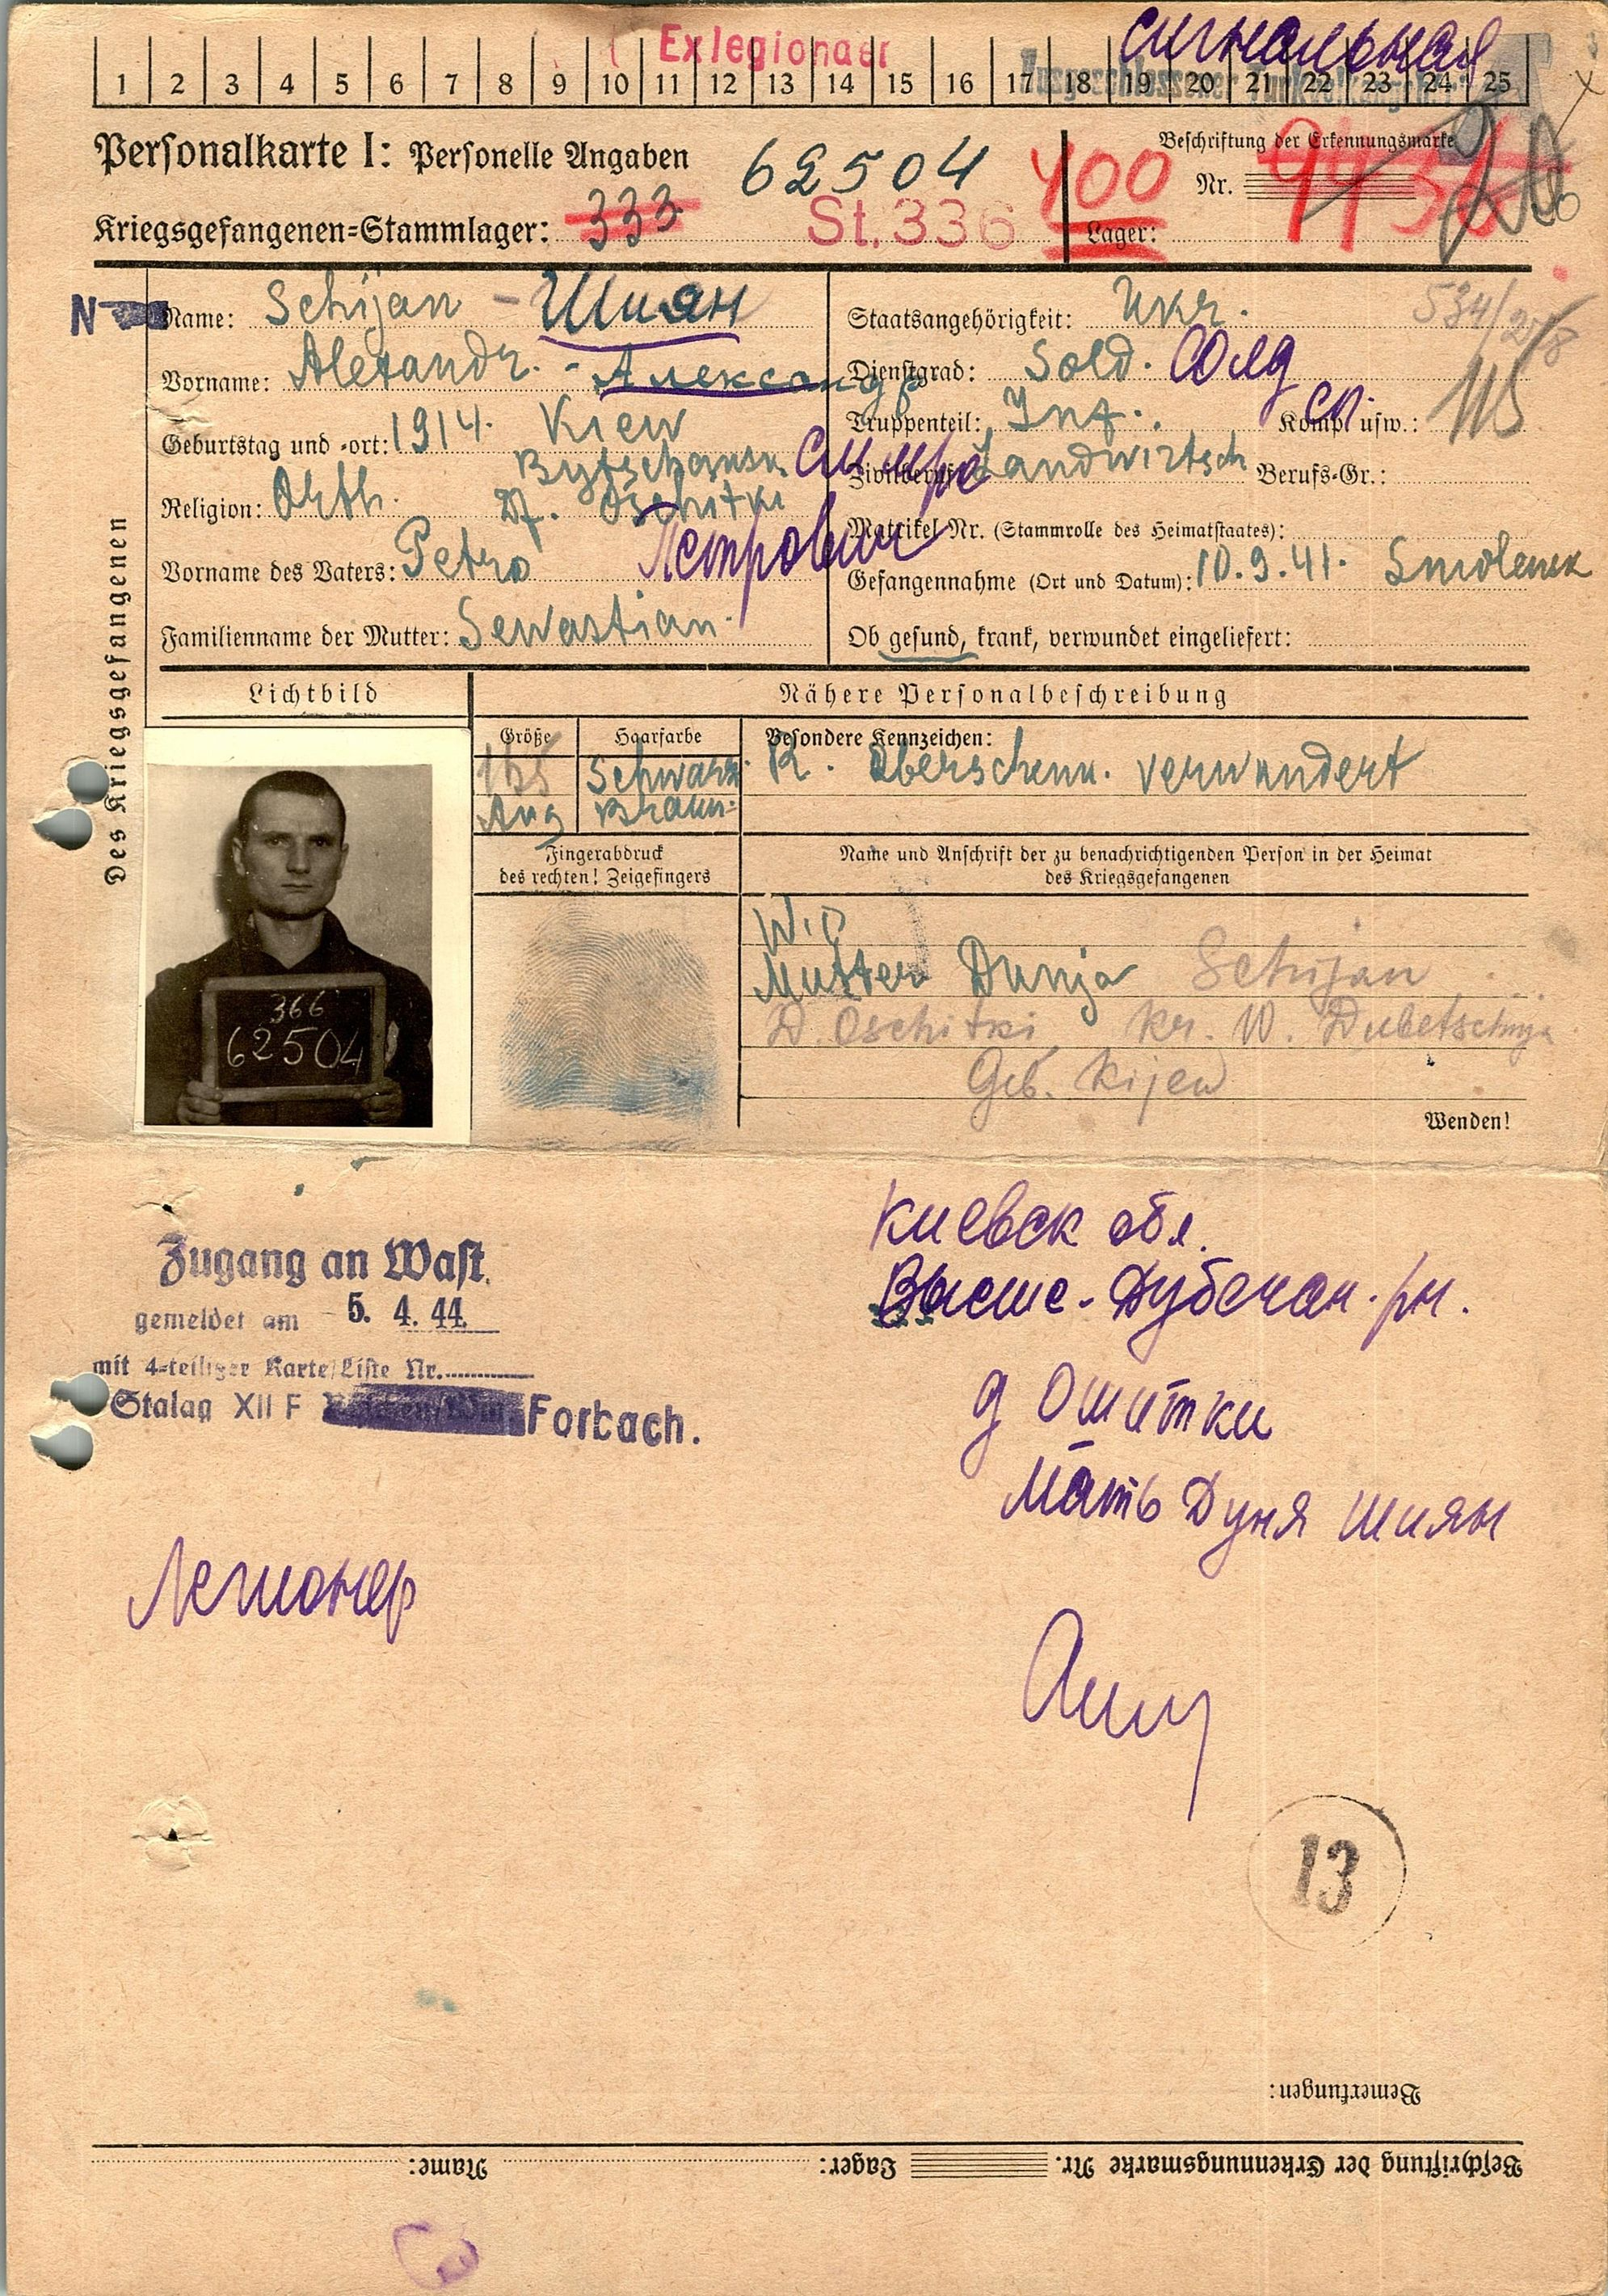 сигнальная
Exlegionaer
1 2 3 4 5 6 7 8 9 10 11 12 13 14 15 16 17 18 19 20 21 22 23 24 25
Personalkarte I: Personelle Angaben
62504
400
Beschriftung der Erkennungsmarke
Nr.
Kriegsgefangenen=Stammlager: 333
St. 336
Lager:
Des Kriegsgefangenen
Name: Schijan - Шиян
Vorname: Alexandr. - Александр
Geburtstag und =ort: 1914. Kiew
Religion: Orth. Df. Oschitki
Vorname des Vaters: Petro Петрович
Familienname der Mutter: Sewastian.
Staatsangehörigkeit: Ukr.
Dienstgrad: Sold. Солд
Truppenteil: Inf. Komp. usw.:
115
Zivilberuf: Landwirtsch Berufs=Gr.:
Matrikel Nr. (Stammrolle des Heimatstaates):
Gefangennahme (Ort und Datum): 10.9.41. Smolensk
Ob gesund, krank, verwundet eingeliefert:
Lichtbild
Nähere Personalbeschreibung
Größe
Haarfarbe
Besondere Kennzeichen:
165 Schwarz. R. Oberschenk. verwundert
Aug Braun.
Fingerabdruck
des rechten! Zeigefingers
Name und Anschrift der zu benachrichtigenden Person in der Heimat
des Kriegsgefangenen
366
62504
Mutter Dunja Schijan
D. Oschitki Kr. W. Dubetschnja
Geb. Kijew
Wenden!
Zugang an Wast.
gemeldet am 5. 4. 44.
mit 4=teiliger Karte/Liste Nr.
Stalag XII F Forbach.
Киевск обл.
Высше-Дубечан. рн.
д Ошитки
Мать Дуня Шиян
Легионер
13
Bemerkungen:
Beschriftung der Erkennungsmarke Nr. Lager: Name: